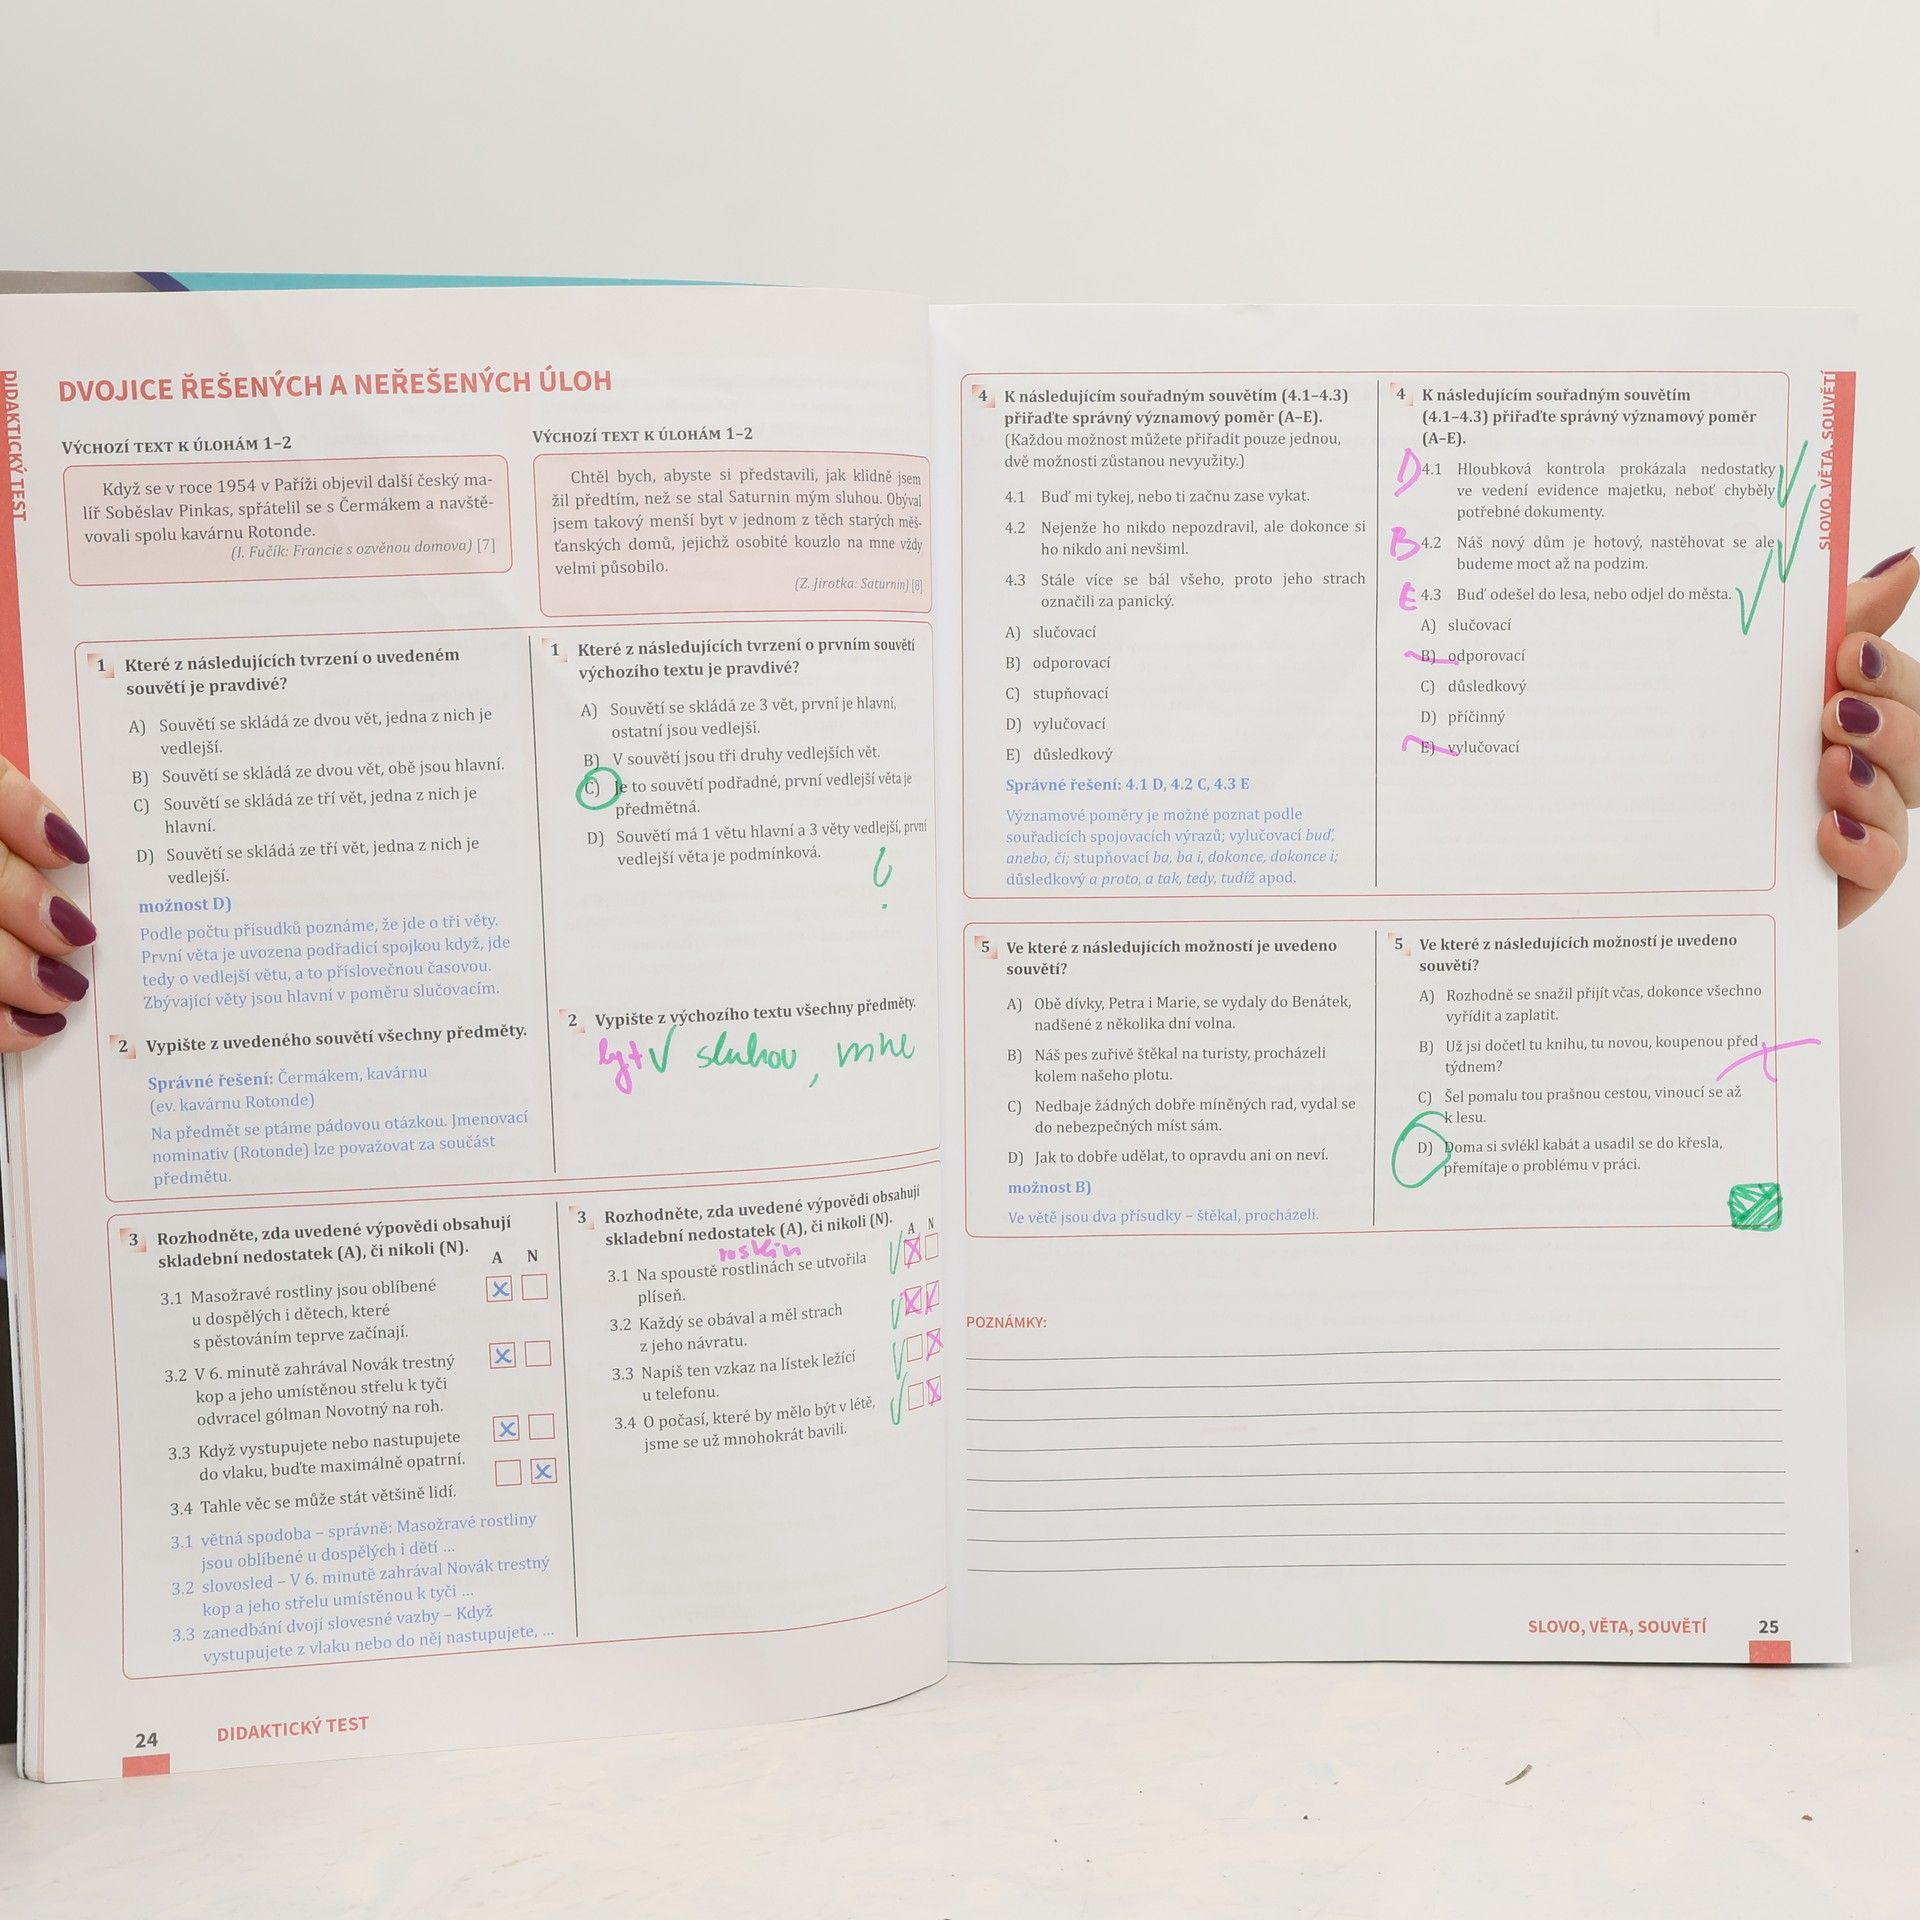 DIDAKTICKÝ TEST
DVOJICE ŘEŠENÝCH A NEŘEŠENÝCH ÚLOH
VÝCHOZÍ TEXT K ÚLOHÁM 1–2
Když se v roce 1954 v Paříži objevil další český ma-
líř Soběslav Pinkas, spřátelil se s Čermákem a navště-
vovali spolu kavárnu Rotonde.
(I. Fučík: Francie s ozvěnou domova) [7]
VÝCHOZÍ TEXT K ÚLOHÁM 1–2
Chtěl bych, abyste si představili, jak klidně jsem
žil předtím, než se stal Saturnin mým sluhou. Obýval
jsem takový menší byt v jednom z těch starých měš-
ťanských domů, jejichž osobité kouzlo na mne vždy
velmi působilo.
(Z. Jirotka: Saturnin) [8]
1 Které z následujících tvrzení o uvedeném
souvětí je pravdivé?
A) Souvětí se skládá ze dvou vět, jedna z nich je
vedlejší.
B) Souvětí se skládá ze dvou vět, obě jsou hlavní.
C) Souvětí se skládá ze tří vět, jedna z nich je
hlavní.
D) Souvětí se skládá ze tří vět, jedna z nich je
vedlejší.
možnost D)
Podle počtu přísudků poznáme, že jde o tři věty.
První věta je uvozena podřadicí spojkou když, jde
tedy o vedlejší větu, a to příslovečnou časovou.
Zbývající věty jsou hlavní v poměru slučovacím.
2 Vypište z uvedeného souvětí všechny předměty.
Správné řešení: Čermákem, kavárnu
(ev. kavárnu Rotonde)
Na předmět se ptáme pádovou otázkou. Jmenovací
nominativ (Rotonde) lze považovat za součást
předmětu.
1 Které z následujících tvrzení o prvním souvětí
výchozího textu je pravdivé?
A) Souvětí se skládá ze 3 vět, první je hlavní,
ostatní jsou vedlejší.
B) V souvětí jsou tři druhy vedlejších vět.
C) Je to souvětí podřadné, první vedlejší věta je
předmětná.
D) Souvětí má 1 větu hlavní a 3 věty vedlejší, první
vedlejší věta je podmínková.
?
2 Vypište z výchozího textu všechny předměty.
byt ✓ sluhou, mne
3 Rozhodněte, zda uvedené výpovědi obsahují
skladební nedostatek (A), či nikoli (N).
A N
3.1 Masožravé rostliny jsou oblíbené
u dospělých i dětech, které
s pěstováním teprve začínají.
3.2 V 6. minutě zahrával Novák trestný
kop a jeho umístěnou střelu k tyči
odvracel gólman Novotný na roh.
3.3 Když vystupujete nebo nastupujete
do vlaku, buďte maximálně opatrní.
3.4 Tahle věc se může stát většině lidí.
3.1 větná spodoba – správně: Masožravé rostliny
jsou oblíbené u dospělých i dětí ...
3.2 slovosled – V 6. minutě zahrával Novák trestný
kop a jeho střelu umístěnou k tyči ...
3.3 zanedbání dvojí slovesné vazby – Když
vystupujete z vlaku nebo do něj nastupujete, ...
3 Rozhodněte, zda uvedené výpovědi obsahují
skladební nedostatek (A), či nikoli (N).
A N
3.1 Na spoustě rostlinách se utvořila
plíseň.
3.2 Každý se obával a měl strach
z jeho návratu.
3.3 Napiš ten vzkaz na lístek ležící
u telefonu.
3.4 O počasí, které by mělo být v létě,
jsme se už mnohokrát bavili.
24 DIDAKTICKÝ TEST
4 K následujícím souřadným souvětím (4.1–4.3)
přiřaďte správný významový poměr (A–E).
(Každou možnost můžete přiřadit pouze jednou,
dvě možnosti zůstanou nevyužity.)
4.1 Buď mi tykej, nebo ti začnu zase vykat.
4.2 Nejenže ho nikdo nepozdravil, ale dokonce si
ho nikdo ani nevšiml.
4.3 Stále více se bál všeho, proto jeho strach
označili za panický.
A) slučovací
B) odporovací
C) stupňovací
D) vylučovací
E) důsledkový
Správné řešení: 4.1 D, 4.2 C, 4.3 E
Významové poměry je možné poznat podle
souřadicích spojovacích výrazů; vylučovací buď,
anebo, či; stupňovací ba, ba i, dokonce, dokonce i;
důsledkový a proto, a tak, tedy, tudíž apod.
4 K následujícím souřadným souvětím
(4.1–4.3) přiřaďte správný významový poměr
(A–E).
D 4.1 Hloubková kontrola prokázala nedostatky
ve vedení evidence majetku, neboť chyběly
potřebné dokumenty.
B 4.2 Náš nový dům je hotový, nastěhovat se ale
budeme moct až na podzim.
E 4.3 Buď odešel do lesa, nebo odjel do města.
A) slučovací
B) odporovací
C) důsledkový
D) příčinný
E) vylučovací
5 Ve které z následujících možností je uvedeno
souvětí?
A) Obě dívky, Petra i Marie, se vydaly do Benátek,
nadšené z několika dní volna.
B) Náš pes zuřivě štěkal na turisty, procházeli
kolem našeho plotu.
C) Nedbaje žádných dobře míněných rad, vydal se
do nebezpečných míst sám.
D) Jak to dobře udělat, to opravdu ani on neví.
možnost B)
Ve větě jsou dva přísudky – štěkal, procházeli.
5 Ve které z následujících možností je uvedeno
souvětí?
A) Rozhodně se snažil přijít včas, dokonce všechno
vyřídit a zaplatit.
B) Už jsi dočetl tu knihu, tu novou, koupenou před
týdnem?
C) Šel pomalu tou prašnou cestou, vinoucí se až
k lesu.
D) Doma si svlékl kabát a usadil se do křesla,
přemítaje o problému v práci.
POZNÁMKY:
SLOVO, VĚTA, SOUVĚTÍ 25
SLOVO, VĚTA, SOUVĚTÍ